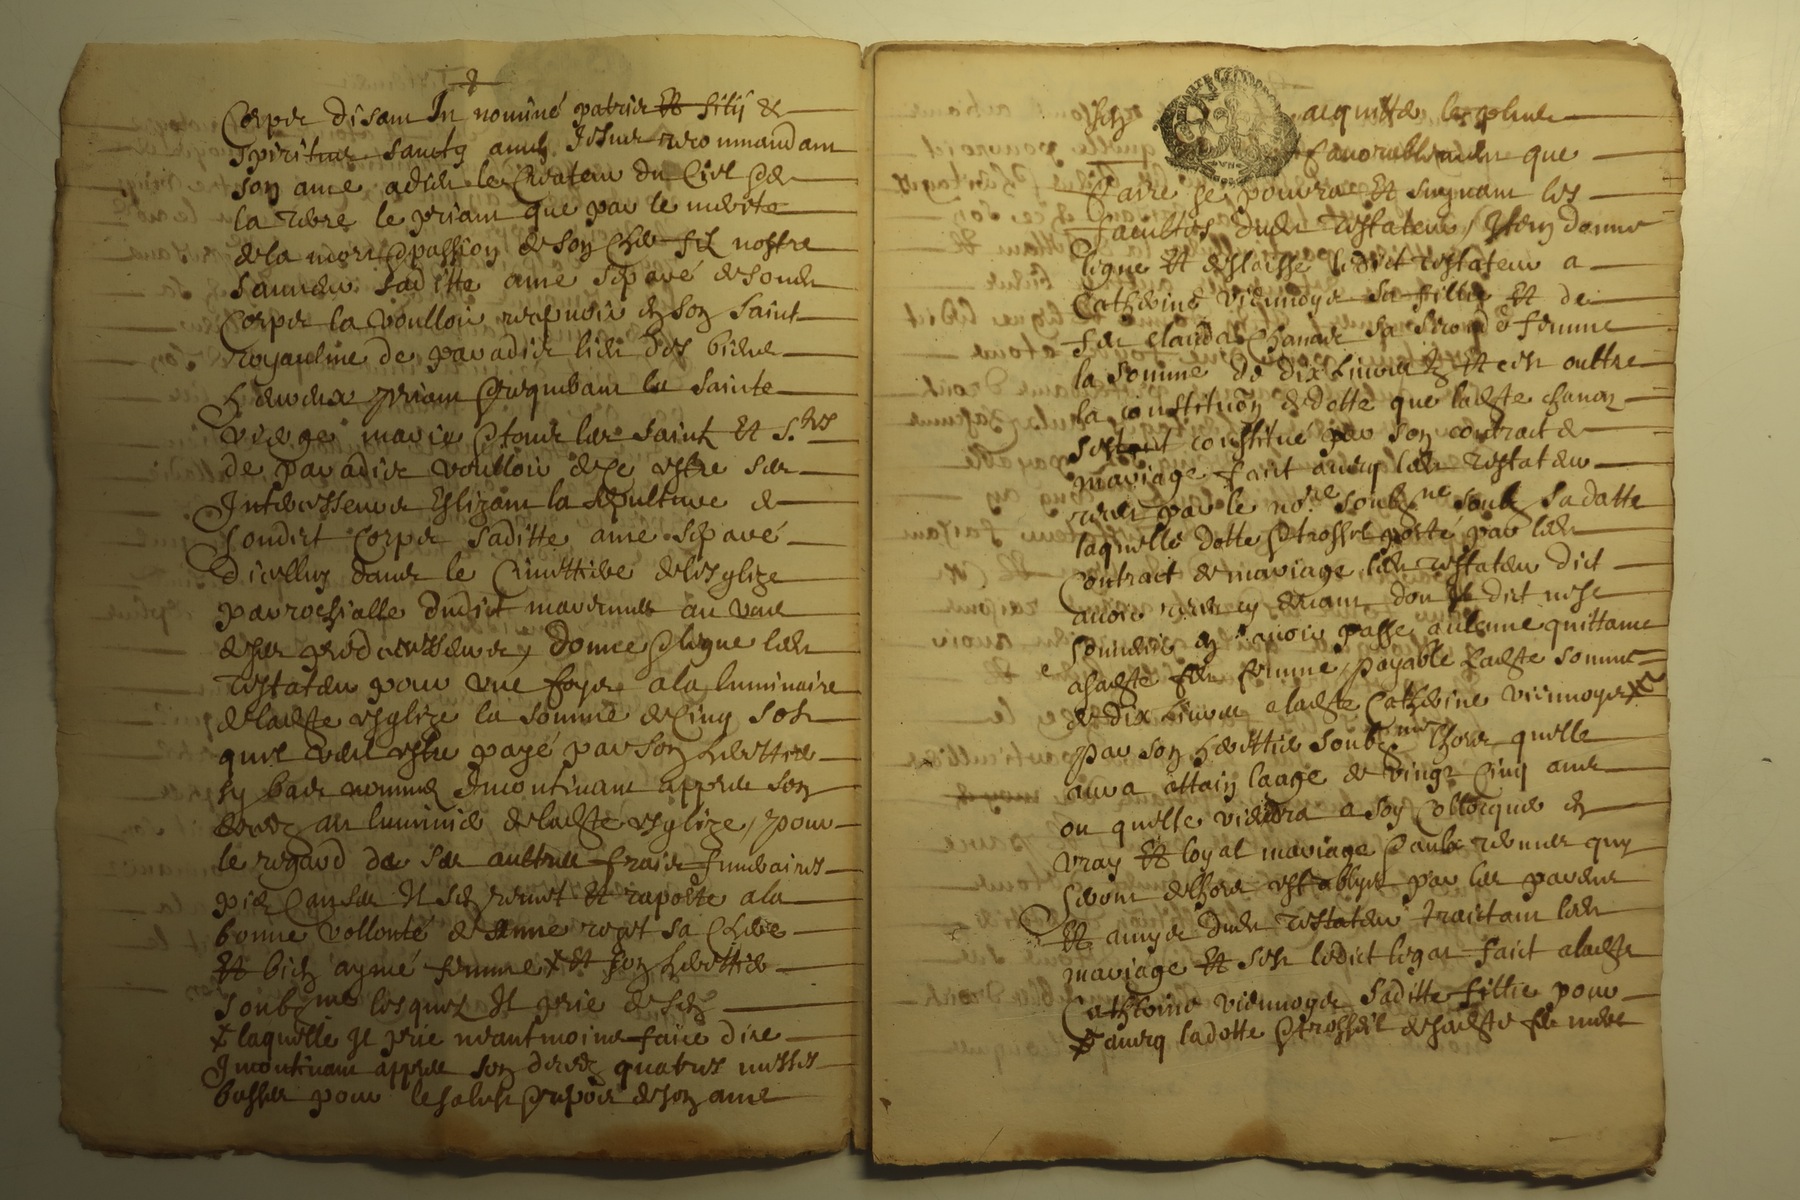 Corps disant In nominé patris Et filij &
spiritus sancty amen Jesus recommandant
son ame a dieu le Createur du Ciel & de
la terre le priant que par le merite
de la mort & passion de son cher fils nostre
sauveur saditte ame separé de sond
Corps la voulloir recepvoir en son saint
royaulme de paradis lieu des biens
heureux priant & requerant la sainte
vierge marie & tous les saints Et s.tes
de paradis voulloir estre ses
Intercesseurs Eslizant la sepulture de
sondict corps saditte ame separé
dicelluy dans le Cimettiere de lesglize
parrochialle dudict au vas
de ses predecesseurs, donne & legue led
testateur pour une foys a la luminaire
de ladte esglize la somme de Cinq sols
que veut estre payé par son herittier
sy bas nommé Incontinant appres son
deces au luminier de ladte esglize, pour
le regard de ses aultres frais funeraires
pies causes Il sen remet Et raporte a la
bonne vollonté de Anne sa chere
Et bien aymé femme x Et son herittier
soubz né lesquels Il prie de sen
x laquelle Il prie neantmoins faire dire
Incontinant appres son deces quatres messes
basses pour le salut & repos de son ame
acquitter le plus
favorablement que
faire se pourra Et suyvant les
facultés dud testateur / Item donne
legue Et delaisse ledict testateur a
Catherine viennoys sa fillie Et de
feu claudas Chanas sa segonde femme
la somme de dix livres Et ce oultre
la constitution de dotte que ladte chanas
sestoit constitué par son contract de
mariage faict avecq led testateur
receu par le no.re soubz né soubz sa datte
laquelle dotte & trossel porté par led
contract de mariage led testateur dict
avoir receu cy devant dont Il dict nest
souvenir en avoir passé aulcune quittance
a ladte feu femme, payable ladte somme
de dix livres a ladte Catherine viennoys x
par son herittier soubz né lhors quelle
aura attain laage de vingt Cinq ans
ou quelle viendra a soy colloquer en
vray Et loyal mariage soubz termes quy
seront dhors establys par les parens
Et amys dud testateur traictant led
mariage Et sest ledict legat faict a ladte
Catherine viennoys saditte fillie pour
x avecq la dotte & trossel de ladte feu mere